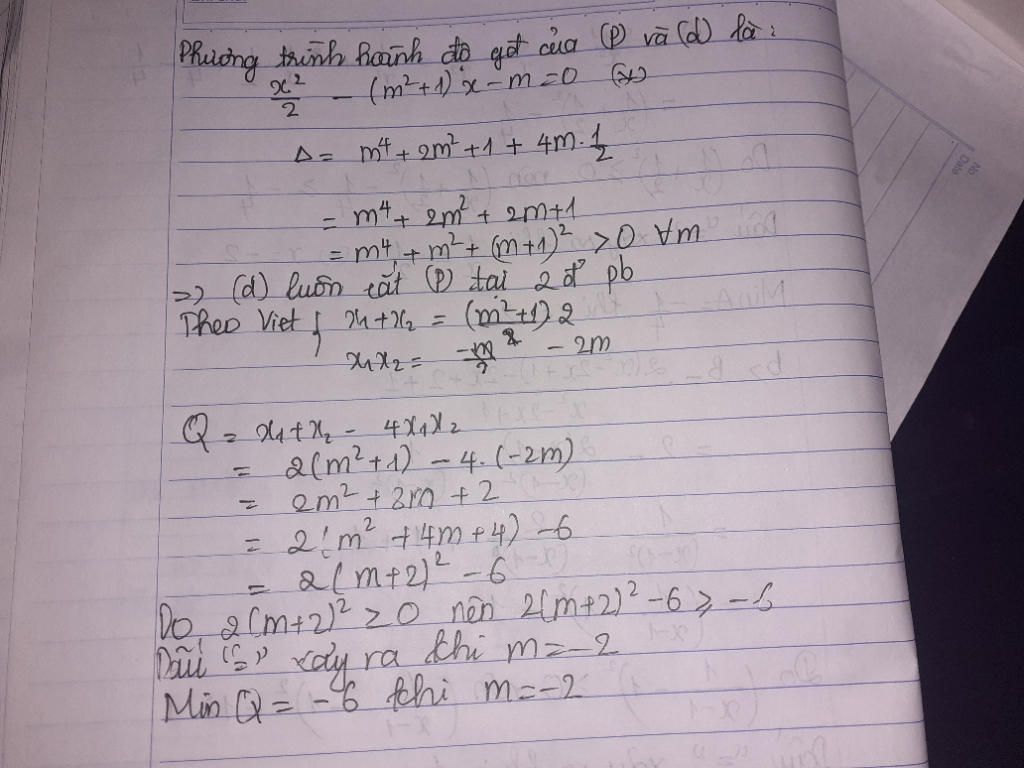 Phương trình hoành độ gđ của (P) và (d) là:
x²/2 - (m²+1)x - m = 0 (*)
Δ = m⁴ + 2m² + 1 + 4m.1/2
= m⁴ + 2m² + 2m + 1
= m⁴ + m² + (m+1)² > 0 ∀m
=> (d) luôn cắt (P) tại 2 đ' pb
Theo Viet { x₁ + x₂ = (m²+1).2
x₁x₂ = - 2m
Q = x₁ + x₂ - 4x₁x₂
= 2(m²+1) - 4.(-2m)
= 2m² + 8m + 2
= 2(m² + 4m + 4) - 6
= 2(m+2)² - 6
Do 2(m+2)² ≥ 0 nên 2(m+2)² - 6 ≥ -6
Dấu "=" xảy ra khi m = -2
Min Q = -6 khi m = -2